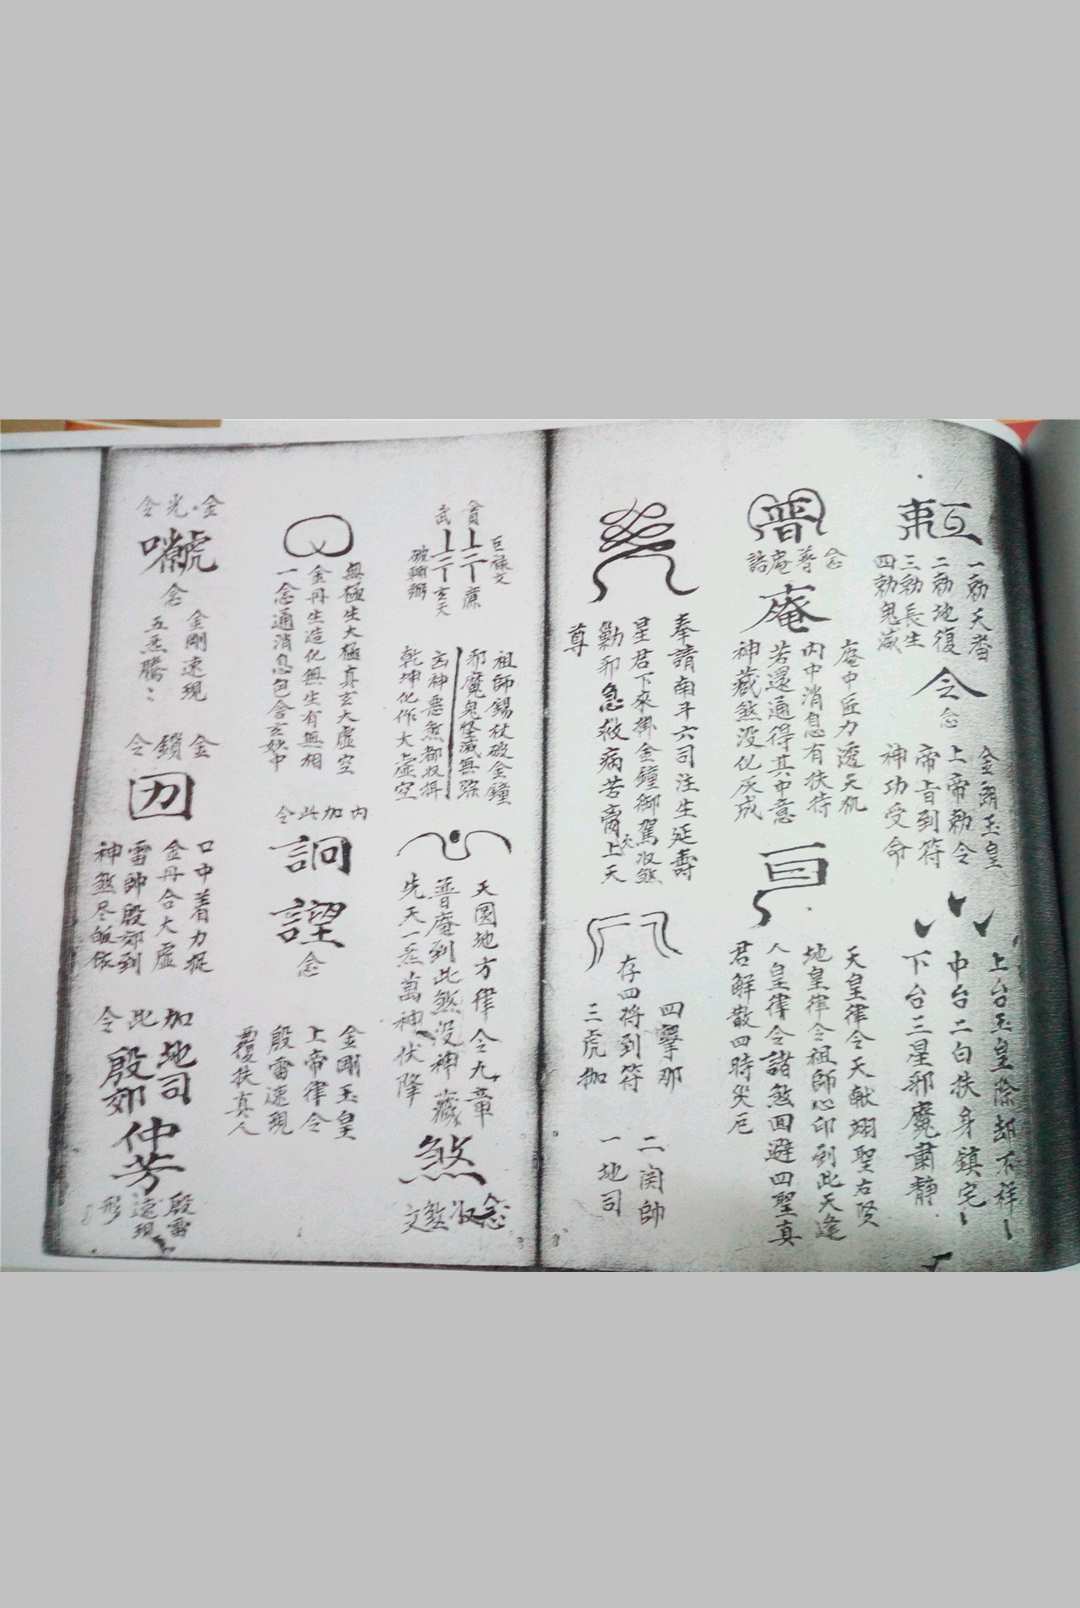 一勅天者
二勅地復
三勅長生
四勅鬼滅
令
念
金闕玉皇
上帝勅令
帝旨到符
神功受命
上台玉皇除却不祥
中台二白扶身鎮宅
下台三星邪魔肅静
普
念普庵誥
庵
庵中匠力透天机
内中消息有扶持
若還通得其中意
神藏煞没化灰成
天皇律令天猷翊聖右贤
地皇律令祖師心印到此天逢
人皇律令諸煞回避四聖真
君解散四時災厄
奉請南斗六司注生延壽
星君下來掛金鐘御駕收煞
勦邪急救病苦齋上天
尊
四擊那
存四将到符
三虎
二関帥
一地司
巨禄文
貪 廉
武 玄天
破
祖師錫杖破金鐘
邪魔鬼怪滅無踪
凶神悪煞都投拱
乾坤化作大虚空
天圆地方律令九章
普庵到此煞没神藏
先天一炁萬神伏降
煞
念收煞文
無極生大極真玄大虚空
金丹生造化無生有無相
一念通消息包含玄妙中
内加此令
詗
念
金剛玉皇
上帝律令
殷雷速現
覆扶真人
金光令
念
金剛速現
五炁騰〻
金鎖令
口中着力捉
金丹合大虚
雷帥殷郊到
神煞尽皈依
加此令
地司
殷郊
仲芳
殷雷
速現
形